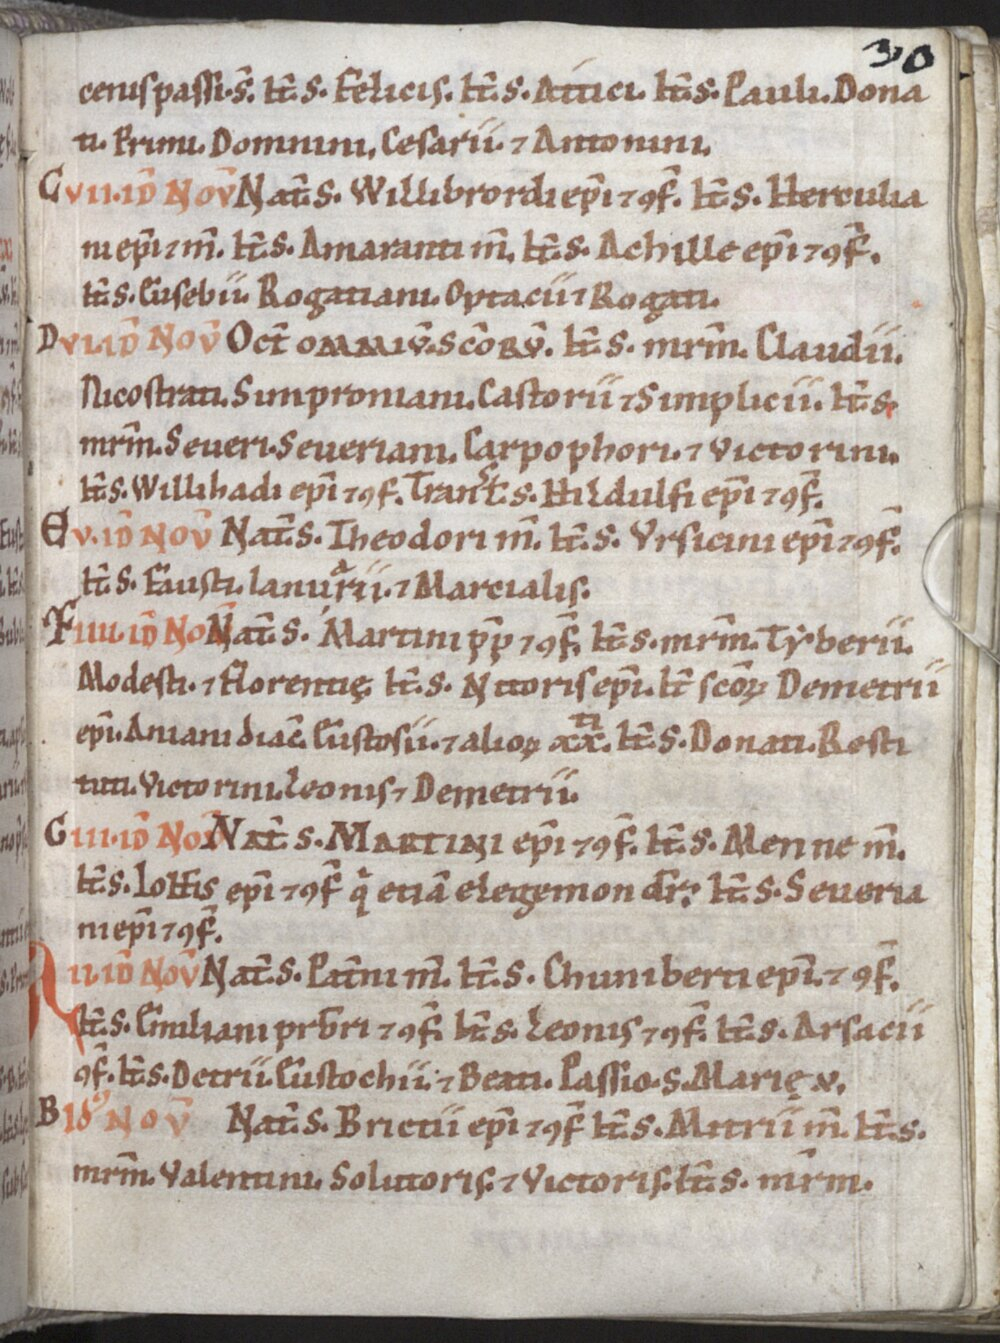 30
cenis passi.s̄. It̄.s. Felicis. It̄.s. Attici. It̄.s. Pauli. Dona
ti. Primi. Domnini. Cesarii. ⁊ Antonini.
C VII. ID̄ NOV̄ Nat̄.s. Willibrordi ep̄i ⁊ ꝯf̄. It̄.s. Herculia
ni ep̄i ⁊ m̄. It̄.s. Amaranti m̄. It̄.s. Achille ep̄i ⁊ ꝯf̄.
It̄.s. Eusebii. Rogatiani. Optacii ⁊ Rogati.
D VI. ID̄ NOV̄ Oct̄ ommiv̄. sc̄orv̄. It̄.s. mr̄m. Claudii.
Nicostrati. Simproniani. Castorii ⁊ Simplicii. It̄.s.
mr̄m. Seueri. Seueriani. Carpophori. ⁊ Victorini.
It̄.s. Willihadi ep̄i ⁊ ꝯf̄. Transt̄.s. Hildulfi ep̄i ⁊ ꝯf̄.
E V. ID̄ NOV̄ Nat̄.s. Theodori m̄. It̄.s. Vrsicini ep̄i ⁊ ꝯf̄.
It̄.s. Fausti. Ianuarii. ⁊ Marcialis.
F IIII. ID̄ NOV̄ Nat̄.s. Martini p̄p̄ ⁊ ꝯf̄. It̄.s. mr̄m. Tyberii.
Modesti. ⁊ Florentię. It̄.s. Nitoris ep̄i. It̄ sc̄oꝝ Demetrii
ep̄i. Aniani diac̄. Eustosii. ⁊ alioꝝ xx̄ti. It̄.s. Donati. Resti
tuti. Victorini. Leonis ⁊ Demetrii.
G III. ID̄ NOV̄ Nat̄ s. MARTINI ep̄i ⁊ ꝯf̄. It̄.s. Menne m̄.
It̄.s. Iohis ep̄i ⁊ ꝯf̄ qi etiā elegemon dr̄. It̄.s. Seueria
ni ep̄i ⁊ ꝯf̄.
A II. ID̄ NOV̄ Nat̄.s. Pat̄ni m̄. It̄.s. Chuniberti ep̄i. ⁊ ꝯf̄.
It̄.s. Emiliani prb̄ri ⁊ ꝯf̄. It̄.s. Leonis ⁊ ꝯf̄. It̄.s. Arsacii
ꝯf̄. It̄.s. Detrii. Eustochii. ⁊ Beati. Passio.s. Marię v.
B Id' NOV̄ Nat̄.s. Brictii ep̄i ⁊ ꝯf̄ It̄.s. Mitrii m̄. It̄.s.
mr̄m. Valentini. Solutoris. ⁊ Victoris. It̄.s. mr̄m.